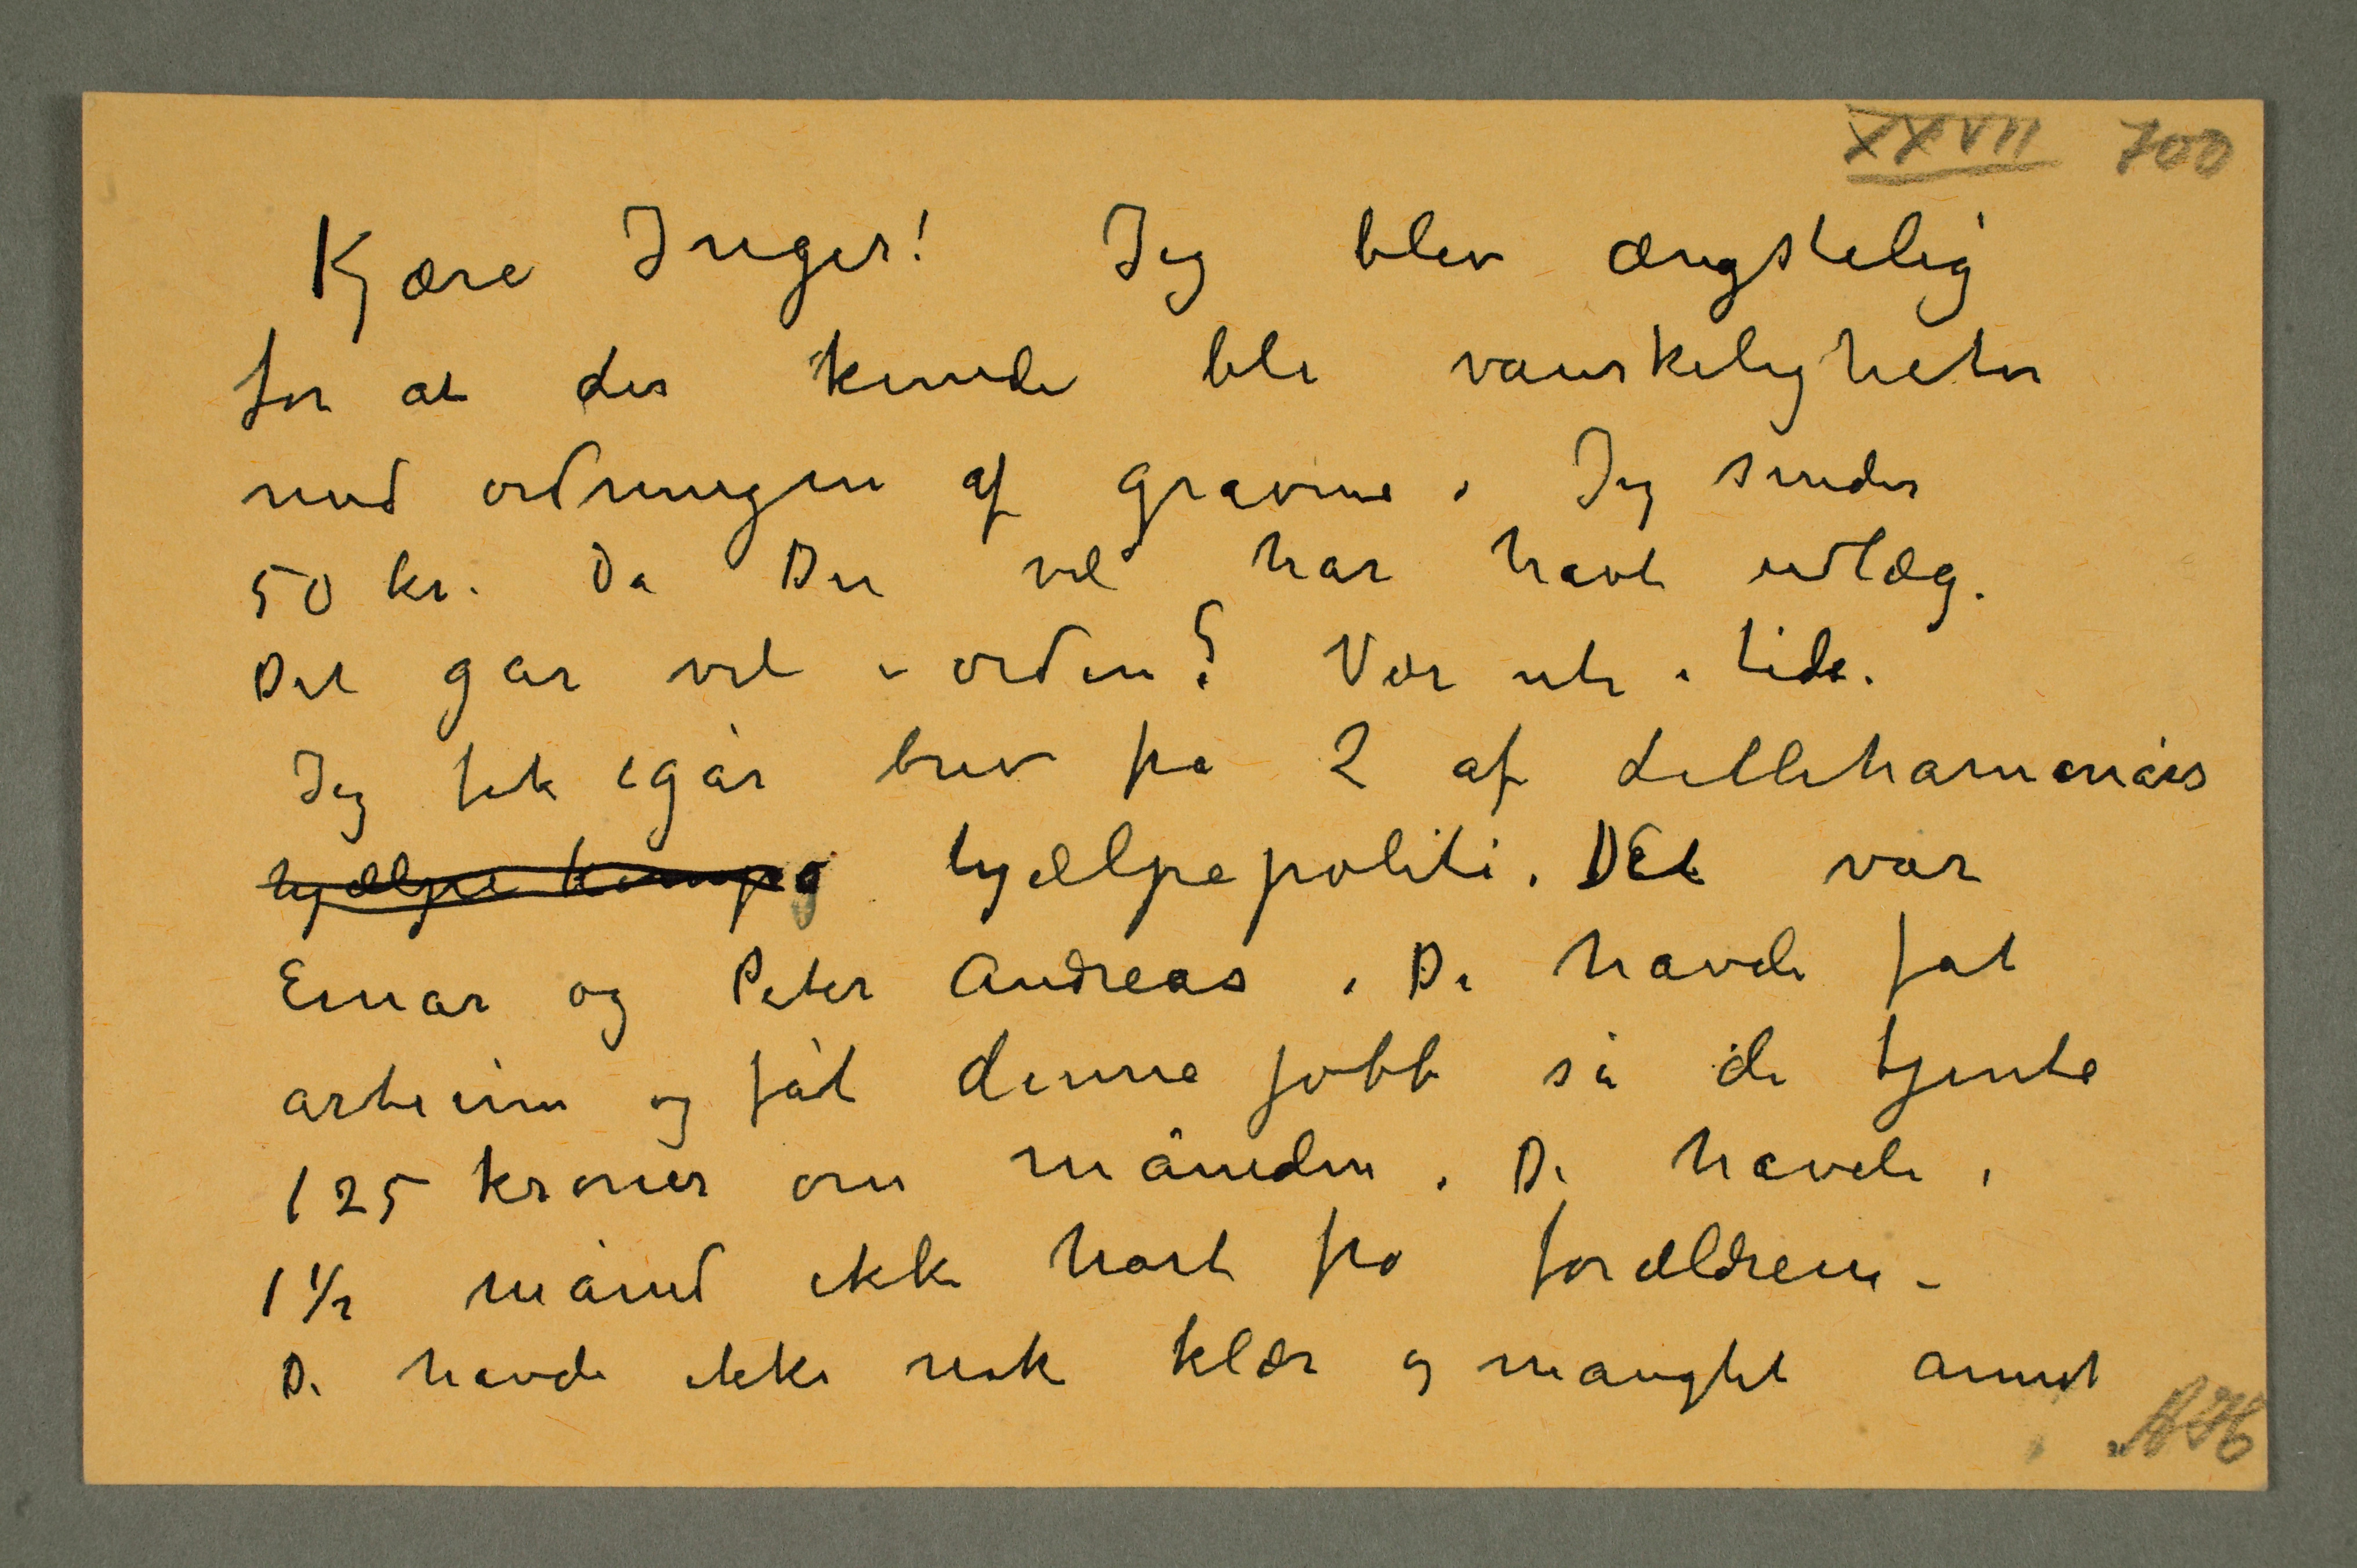 XXVII 700
Kjære Inger! Jeg blev ængstelig
for at der kunde bli vanskeligheter
med ordningen af gravene. Jeg sender
50 kr. Da Du vel har havt utlæg.
Det går vel i orden? Vær ute i tide.
Jeg fik igår brev fra 2 af Lillehammers
hjælpe hjælpepoliti. DEt var
Einar og Peter Andreas. De havde fåt
artium og fåt denne jobb så de tjente
125 kroner om måneden. De havde i
1½ måned ikke hørt fra forældrene –
De havde ikke nok klær og manglet annet
AH